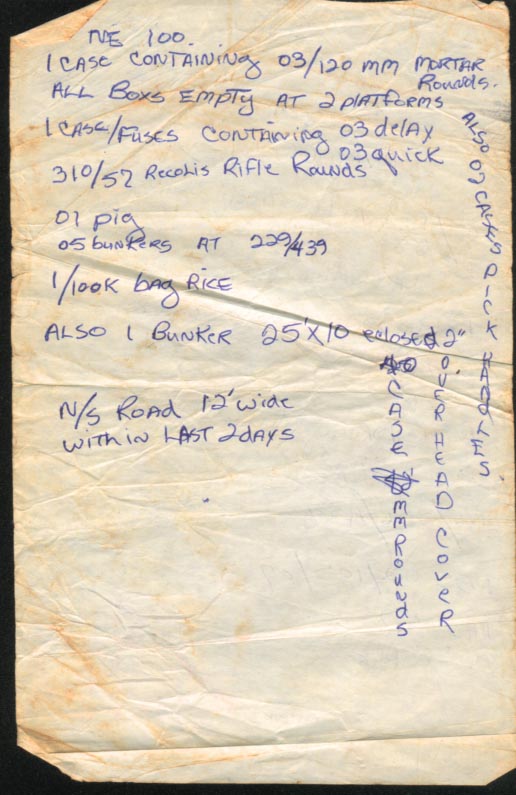 NE 100
1 CASE CONTAINING 03/120 MM MORTAR
Rounds.
ALL BOXS EMPTY AT 2 PLATFORMS
1 CASE/FUSES CONTAINING 03 delAY
03 quick
310/57 Recolis Rifle Rounds
01 pig
05 bunkers AT 229/439
1/100K bag RICE
ALSO 1 BUNKER 25'X10 enclosed 2"
OVERHEAD COVER
CASE MM Rounds
N/S ROAD 12' wide
within LAST 2 days
ALSO 07 CASES PICK HANDLES.